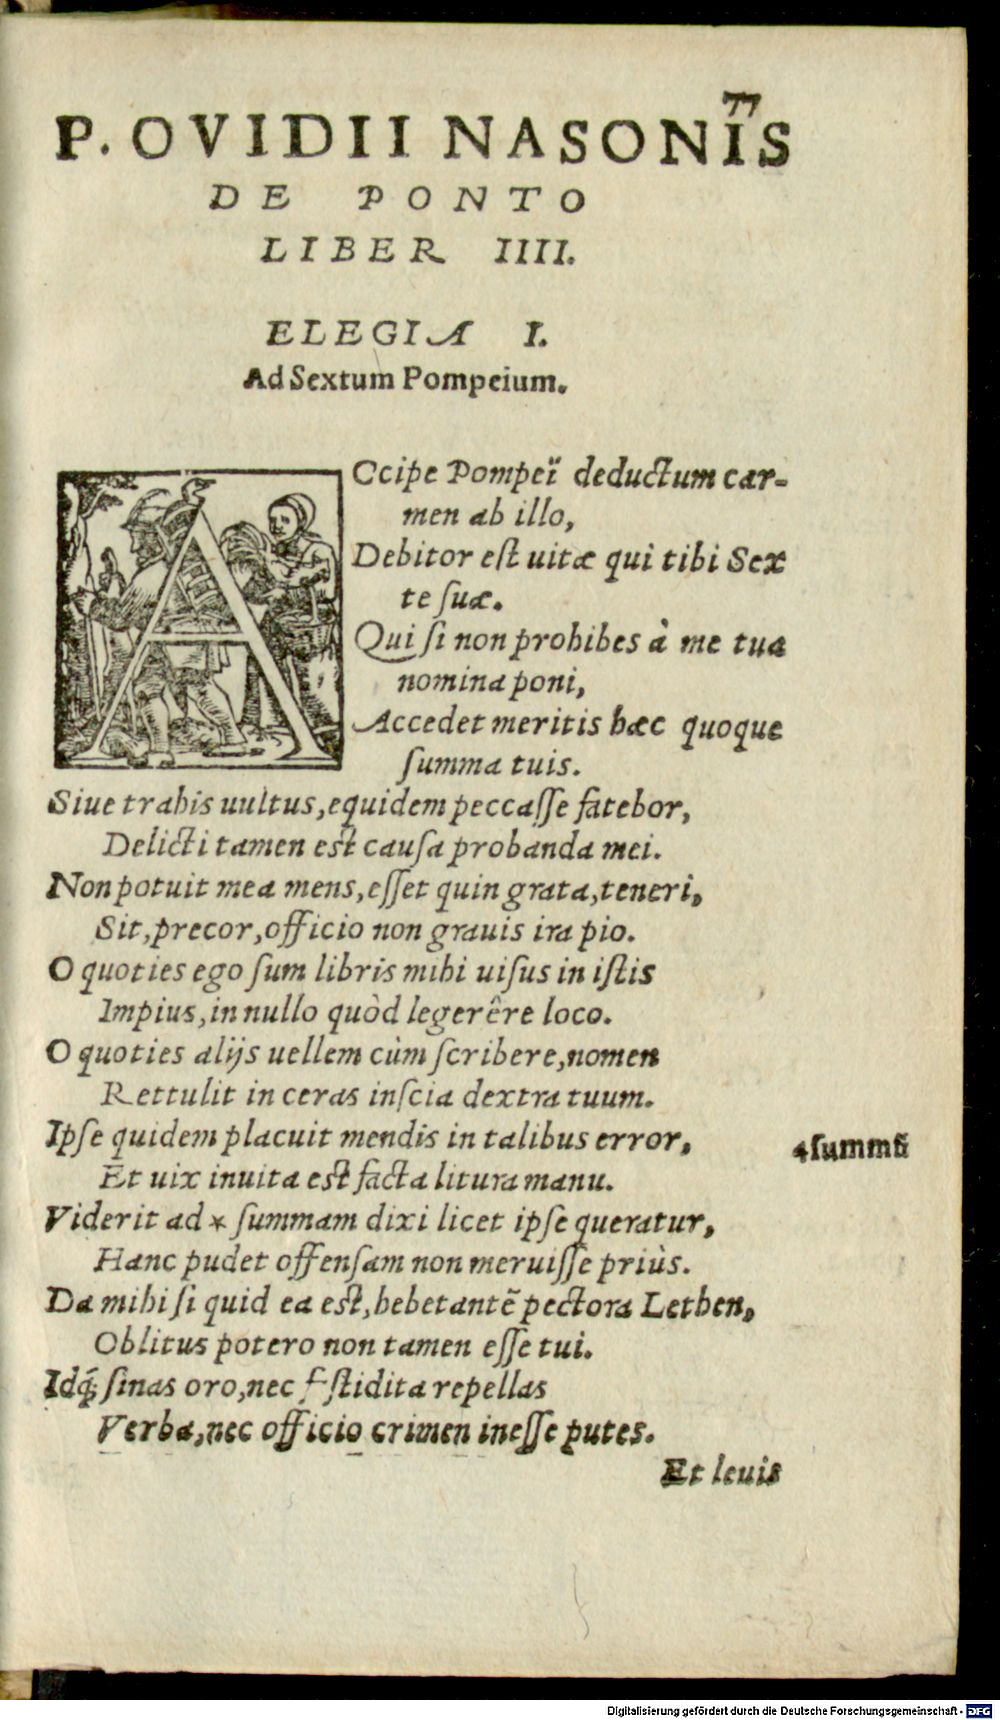 77
P. OVIDII NASONIS
DE PONTO
LIBER IIII.
ELEGIA I.
Ad Sextum Pompeium.
ACcipe Pompeï deductum car-
men ab illo,
Debitor est uitæ qui tibi Sex
te suæ.
Qui si non prohibes à me tua
nomina poni,
Accedet meritis hæc quoque
summa tuis.
Siue trahis uultus, equidem peccasse fatebor,
Delicti tamen est causa probanda mei.
Non potuit mea mens, esset quin grata, teneri,
Sit, precor, officio non grauis ira pio.
O quoties ego sum libris mihi uisus in istis
Impius, in nullo quòd legerêre loco.
O quoties alijs uellem cùm scribere, nomen
Rettulit in ceras inscia dextra tuum.
Ipse quidem placuit mendis in talibus error,
4 summũ
Et uix inuita est facta litura manu.
Viderit ad * summam dixi licet ipse queratur,
Hanc pudet offensam non meruisse priùs.
Da mihi si quid ea est, hebetantẽ pectora Lethen,
Oblitus potero non tamen esse tui.
Idq́; sinas oro, nec f stidita repellas
Verba, nec officio crimen inesse putes.
Et leuis
Digitalisierung gefördert durch die Deutsche Forschungsgemeinschaft - DFG